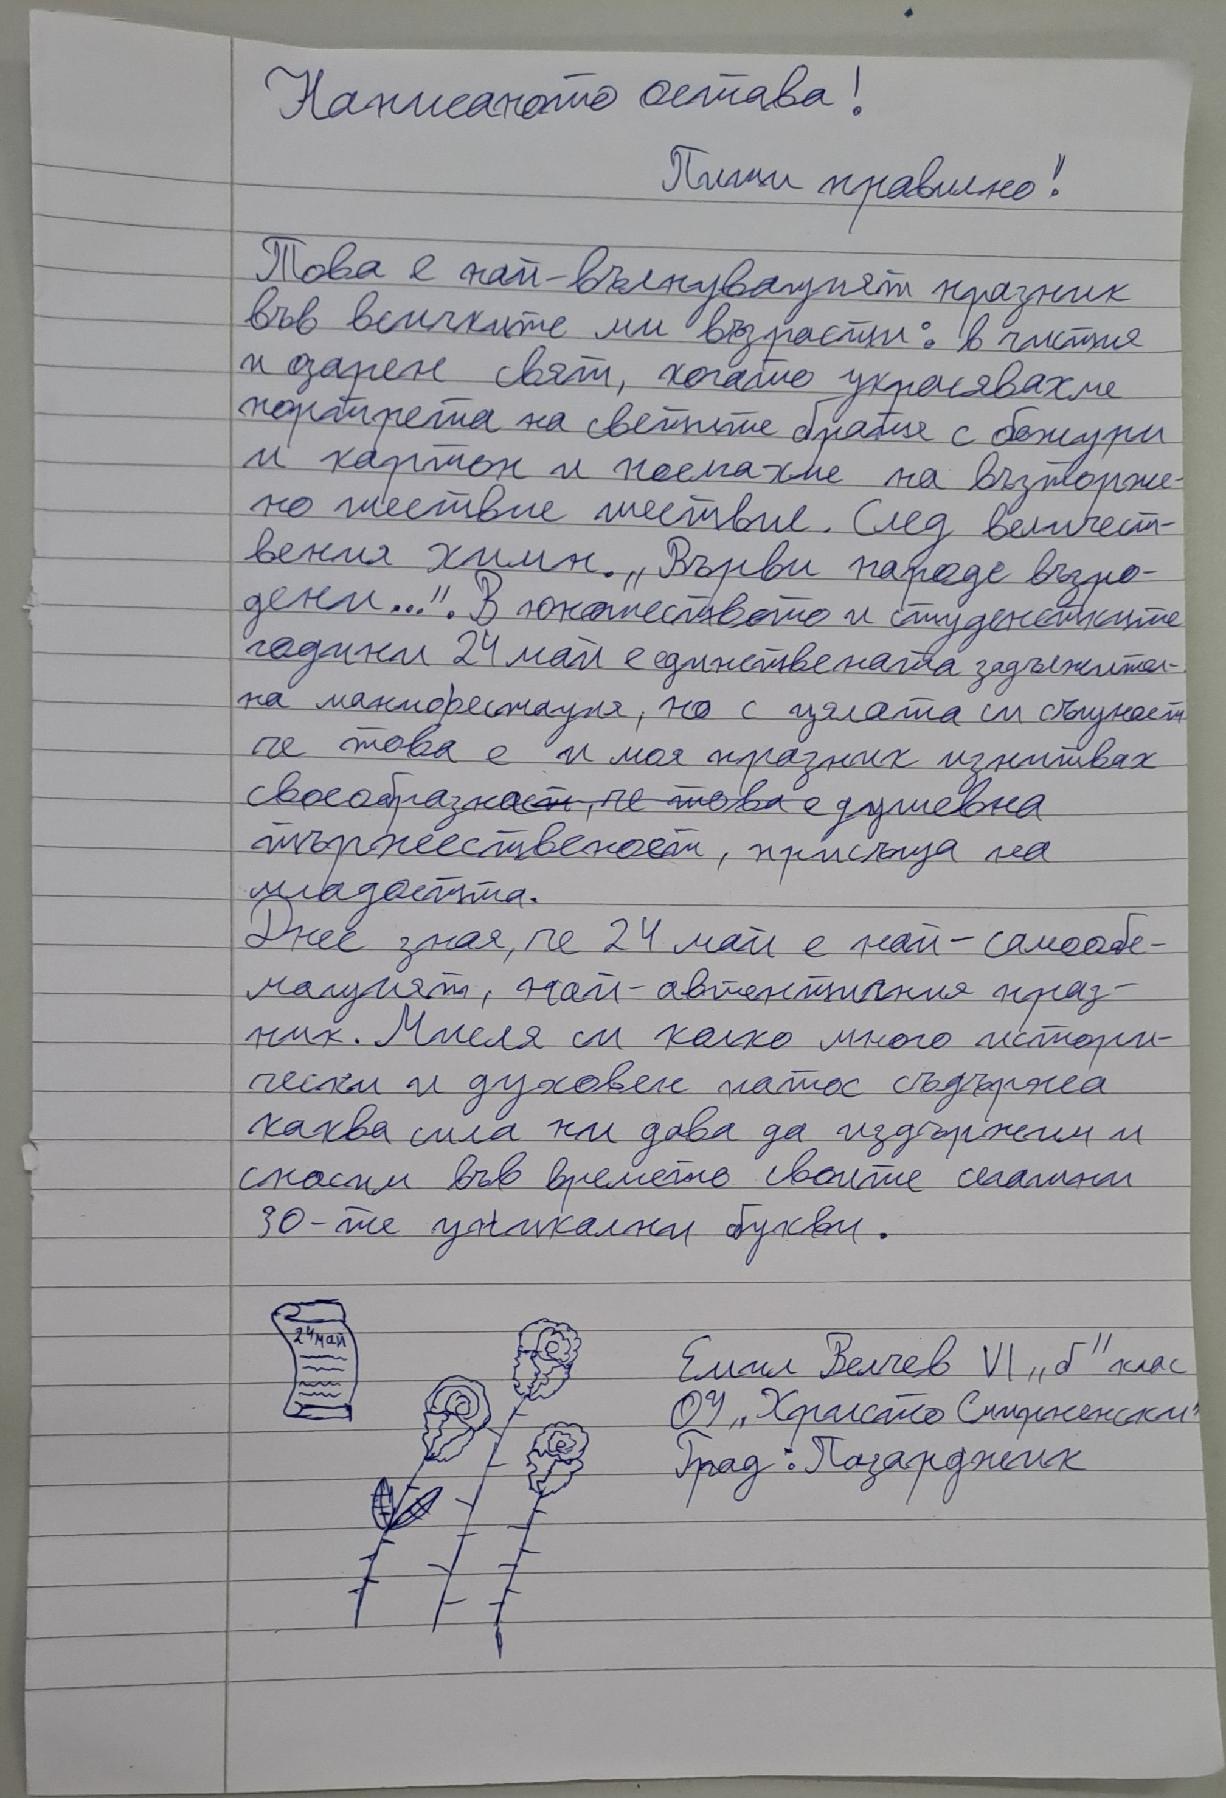 Написаното остава!
Пиши правилно!
Това е най-вълнуващият празник
във всичките ми възрасти: в чистия
и озарен свят, когато украсявахме
портрета на светите братя с божури
и картон и поемахме на възторже-
но шествие шествие. След величест-
вения химн. „Върви народе възро-
дени...". В юношеството и студентските
години 24 май е единствената задължител-
на манифестация, но с цялата си същност
че това е и моя празник изпитвах
своеобразност, че това е душевна
тържественост, присъща на
младостта.
Днес зная, че 24 май е най-самообе-
мащият, най-автентичния праз-
ник. Мисля си колко много истори-
чески и духовен патос съдържа
каква сила ни дава да издържим и
спасим във времето своите сегашни
30-те уникални букви.
24 май
Емил Велчев VI „б" клас
ОУ „Христо Смирненски"
Град: Пазарджик